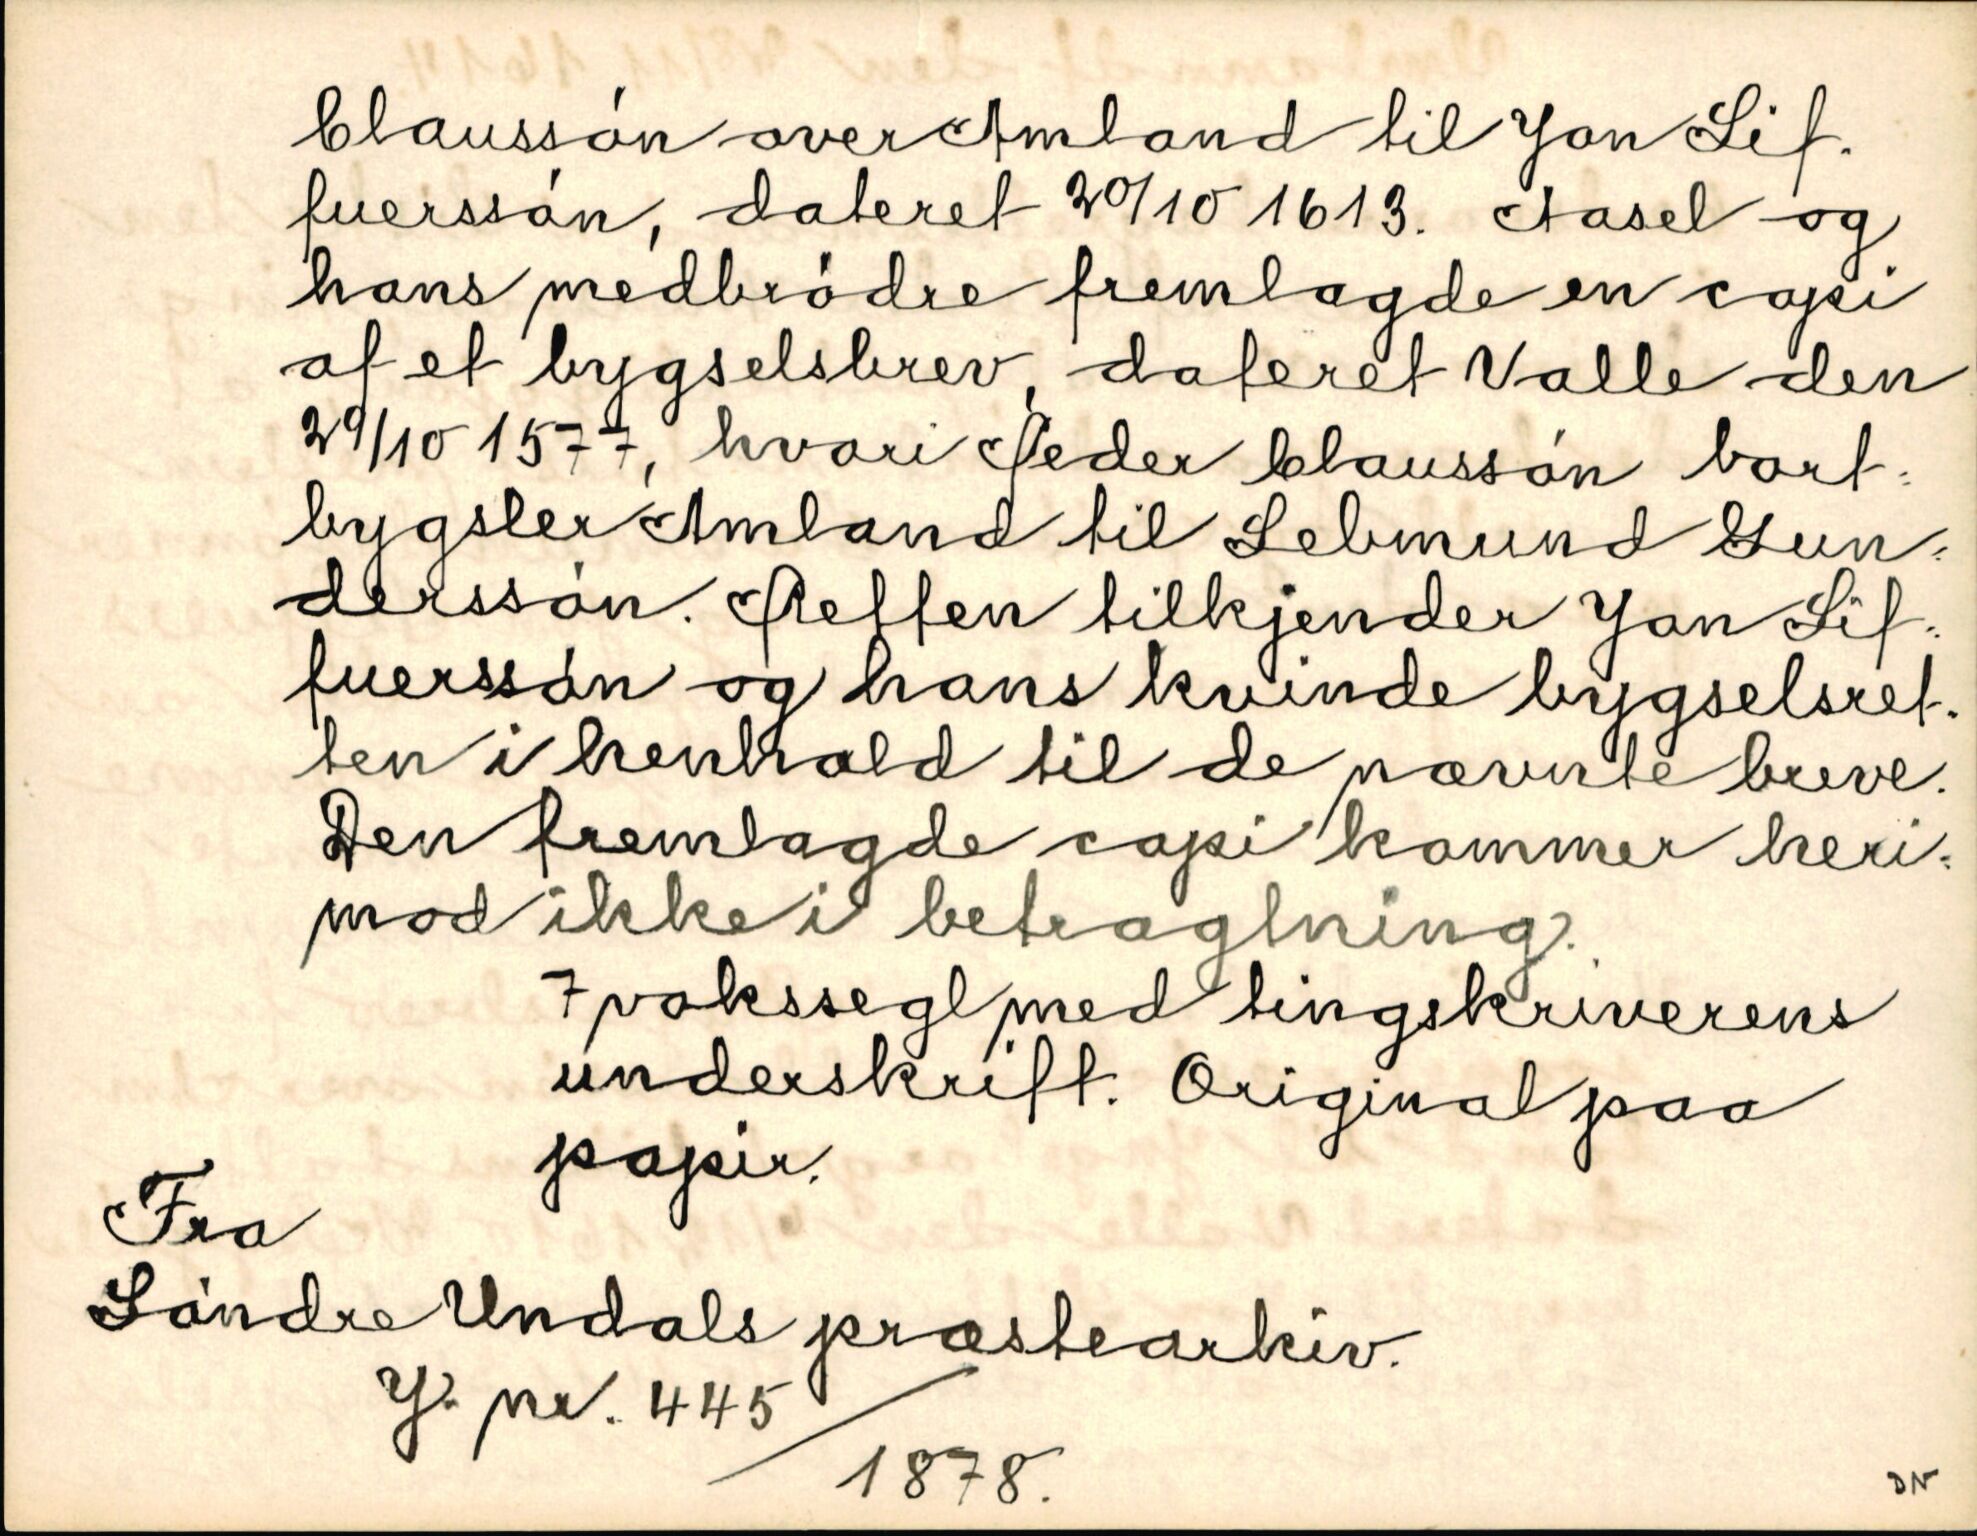 Claussón over Amland til Jon Sif.
fuerssón, dateret 20/10 1613. Aasel og
hans medbródre fremlagde en copi
af et bygselsbrev, dateret Valle den
29/10 1577, hvori Peder Claussón bort=
bygsler Amland til Lebmund Gun=
derssón. Retten tilkjender Jon Sif=
fuerssón og hans kvinde bygselsret.
ten i henhold til de nævnte breve.
Den fremlagde copi kommer heri=
mod ikke i betragtning.
7 vokssegl med tingskriverens
underskrift. Original paa
papir.
Fra
Sóndre Undals præstearkiv.
J. nr. 445/1878.
DN